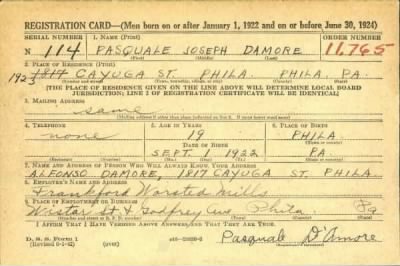 REGISTRATION CARD—(Men born on or after January 1, 1922 and on or before June 30, 1924)
SERIAL NUMBER 1. NAME (Print) ORDER NUMBER
N 114 PASQUALE JOSEPH DAMORE 11,765
(First) (Middle) (Last)
2. PLACE OF RESIDENCE (Print)
1923 1817 CAYUGA ST. PHILA. PHILA. PA.
(Number and street) (Town, township, village, or city) (County) (State)
[THE PLACE OF RESIDENCE GIVEN ON THE LINE ABOVE WILL DETERMINE LOCAL BOARD
JURISDICTION; LINE 2 OF REGISTRATION CERTIFICATE WILL BE IDENTICAL]
3. MAILING ADDRESS
same
[Mailing address if other than place indicated on line 2. If same insert word same]
4. TELEPHONE 5. AGE IN YEARS 6. PLACE OF BIRTH
none 19 PHILA.
DATE OF BIRTH
SEPT. 1 1922 PA.
(Mo.) (Day) (Yr.)
7. NAME AND ADDRESS OF PERSON WHO WILL ALWAYS KNOW YOUR ADDRESS
ALFONSO DAMORE, 1817 CAYUGA ST. PHILA.
8. EMPLOYER'S NAME AND ADDRESS
Frankford Worsted Mills
9. PLACE OF EMPLOYMENT OR BUSINESS
Wistar St & Godfrey Ave Phila Pa
I AFFIRM THAT I HAVE VERIFIED ABOVE ANSWERS AND THAT THEY ARE TRUE.
D. S. S. Form 1 (over)
Pasquale D'Amore